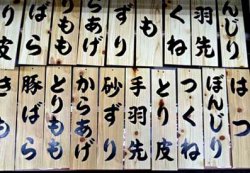 んじり
羽先
くね
も
ずり
あげ
もも
ばら
皮
はつ
ぼんじり
つくね
とり皮
手羽先
砂ずり
からあげ
とりもも
豚ばら
きも